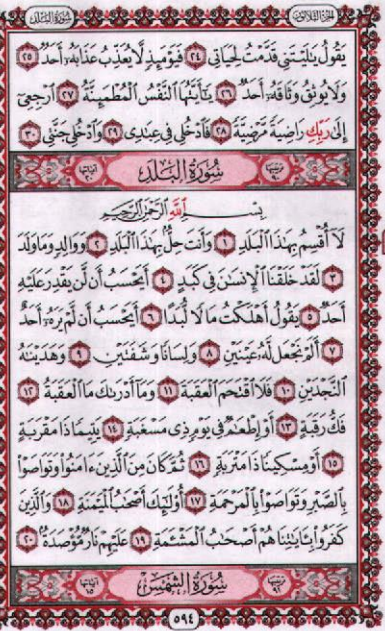 الجزء الثلاثون سورة البلد
يَقُولُ يَٰلَيْتَنِي قَدَّمْتُ لِحَيَاتِي ٢٤ فَيَوْمَئِذٍ لَّا يُعَذِّبُ عَذَابَهُۥٓ أَحَدٌ ٢٥
وَلَا يُوثِقُ وَثَاقَهُۥٓ أَحَدٌ ٢٦ يَٰٓأَيَّتُهَا ٱلنَّفْسُ ٱلْمُطْمَئِنَّةُ ٢٧ ٱرْجِعِىٓ
إِلَىٰ رَبِّكِ رَاضِيَةً مَّرْضِيَّةً ٢٨ فَٱدْخُلِى فِى عِبَٰدِى ٢٩ وَٱدْخُلِى جَنَّتِى ٣٠
ترتيبها ٩٠ سُورَةُ البَلَدِ آياتها ٢٠
بِسْمِ ٱللَّهِ ٱلرَّحْمَٰنِ ٱلرَّحِيمِ
لَآ أُقْسِمُ بِهَٰذَا ٱلْبَلَدِ ١ وَأَنتَ حِلٌّۢ بِهَٰذَا ٱلْبَلَدِ ٢ وَوَالِدٍ وَمَا وَلَدَ
٣ لَقَدْ خَلَقْنَا ٱلْإِنسَٰنَ فِى كَبَدٍ ٤ أَيَحْسَبُ أَن لَّن يَقْدِرَ عَلَيْهِ
أَحَدٌ ٥ يَقُولُ أَهْلَكْتُ مَالًا لُّبَدًا ٦ أَيَحْسَبُ أَن لَّمْ يَرَهُۥٓ أَحَدٌ
٧ أَلَمْ نَجْعَل لَّهُۥ عَيْنَيْنِ ٨ وَلِسَانًا وَشَفَتَيْنِ ٩ وَهَدَيْنَٰهُ
ٱلنَّجْدَيْنِ ١٠ فَلَا ٱقْتَحَمَ ٱلْعَقَبَةَ ١١ وَمَآ أَدْرَىٰكَ مَا ٱلْعَقَبَةُ ١٢
فَكُّ رَقَبَةٍ ١٣ أَوْ إِطْعَٰمٌ فِى يَوْمٍ ذِى مَسْغَبَةٍ ١٤ يَتِيمًا ذَا مَقْرَبَةٍ
١٥ أَوْ مِسْكِينًا ذَا مَتْرَبَةٍ ١٦ ثُمَّ كَانَ مِنَ ٱلَّذِينَ ءَامَنُوا۟ وَتَوَاصَوْا۟
بِٱلصَّبْرِ وَتَوَاصَوْا۟ بِٱلْمَرْحَمَةِ ١٧ أُو۟لَٰٓئِكَ أَصْحَٰبُ ٱلْمَيْمَنَةِ ١٨ وَٱلَّذِينَ
كَفَرُوا۟ بِـَٔايَٰتِنَا هُمْ أَصْحَٰبُ ٱلْمَشْـَٔمَةِ ١٩ عَلَيْهِمْ نَارٌ مُّؤْصَدَةٌۢ ٢٠
ترتيبها ٩١ سُورَةُ الشَّمْسِ آياتها ١٥
٥٩٤